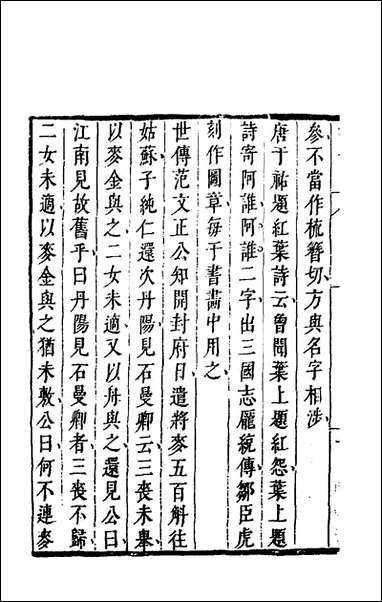 參不當作梳簪切方與名字相涉
唐于祐題紅葉詩云曾聞葉上題紅怨葉上題
詩寄阿誰阿誰二字出三國志龐統傳鄒臣虎
刻作圖章每于書畵中用之
世傳范文正公知開封府日遣將麥五百斛往
姑蘇子純仁還次丹陽見石曼卿云三喪未舉
以麥金與之二女未適又以舟與之還見公曰
江南見故舊乎曰丹陽見石曼卿者三喪不歸
二女未適以麥金與之猶未敷公曰何不連麥